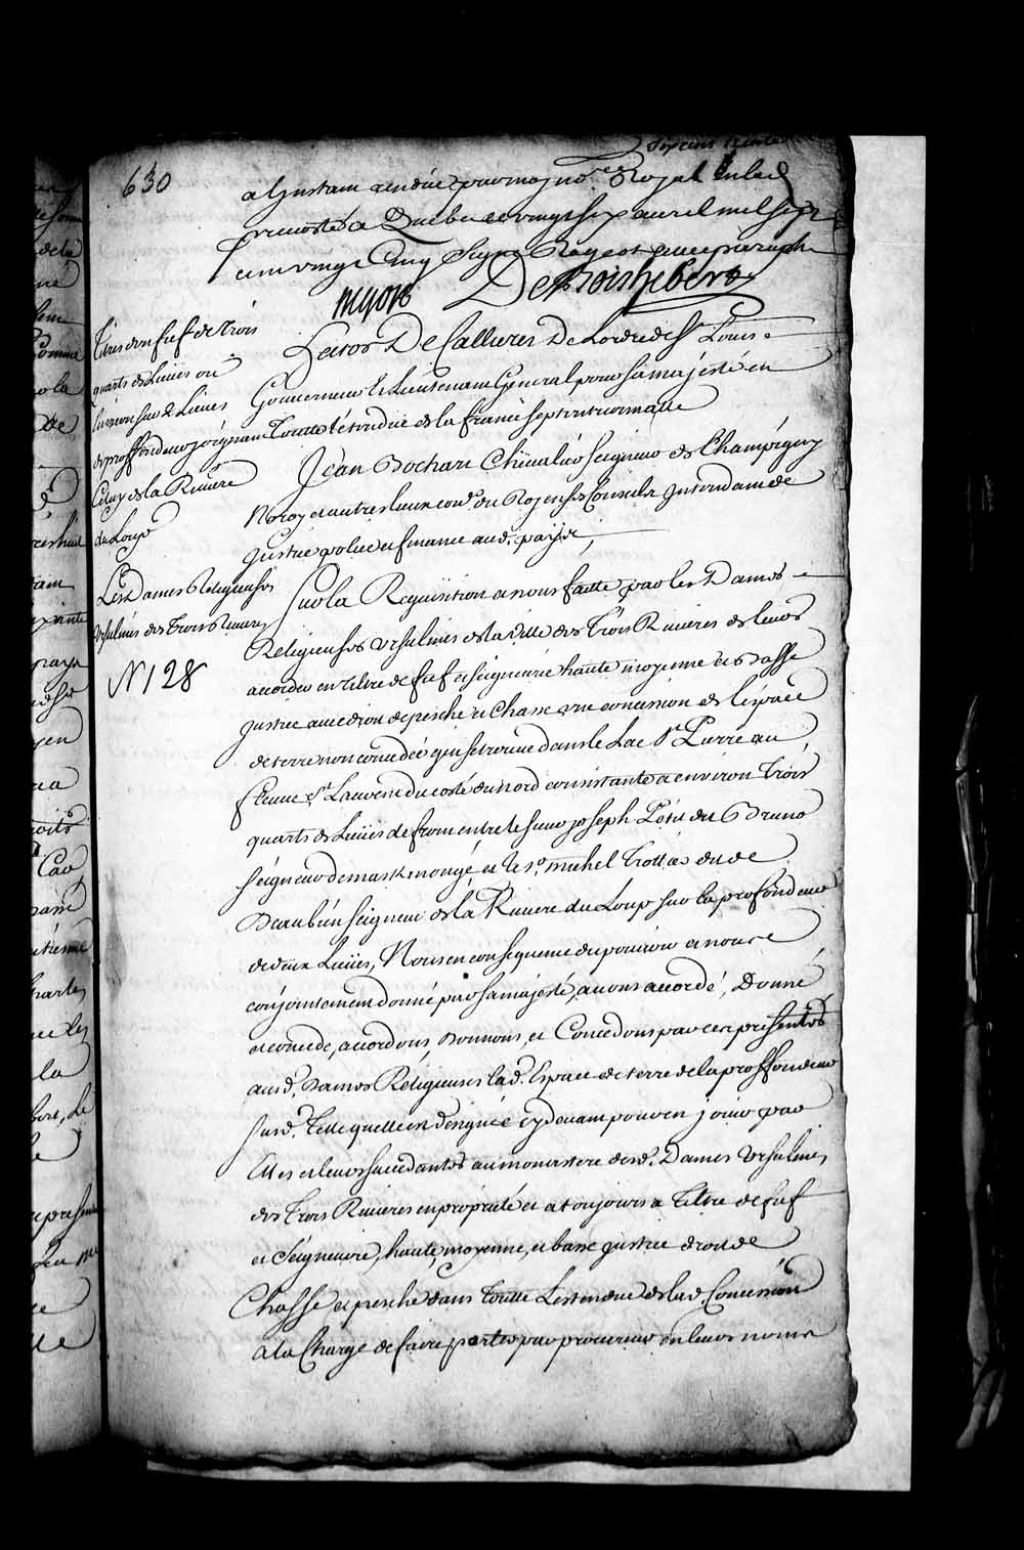 630
a Linstant rendüe par moy no.re Royal en la d
prevosté a Quebec ce vingt six avril mil sept
cent vingt Cinq Signé
Begon DeBoishebert
Titres d'un fief de trois
quarts de Lieües ou
environ sur 2 Lieües
de proffondeur joignant
Celuy de la Riviere
du Loup
Les Dames Religieuses
Ursulines des Trois Rivieres
N 128
Hector De Callieres De Lordre de St Louis
Gouverneur et Lieutenant General pour sa majesté en
Toutte létendüe de la france septentrionnalle
Jean Bochart Chevalier Seigneur de Champigny
Noroy et autres lieux con.er du Roy en ses Conseils Jntendant de
Justice police et finance aud. pays,
Sur la Requisition a nous faitte par les Dames
Religieuses Ursulines de la ville des Trois Rivieres de leurs
accorder en tiltre de fief et seigneurie haute moyenne et Basse
justice avec droit de pesche et Chasse une concession de l'éspace
de terre non concedée qui se trouve dans le Lac St Pierre au
fleuve St Laurens du costé du nord consistante a environ Trois
quarts de Lieües de front entre le sieur joseph Petit dit Bruno
seigneur de maskinongé, et le sr. michel Trottier dit de
Beaubien seigneur de la Riviere du Loup sur la profondeur
de deux Lieües, Nous en consequence du pouvoir a nous
conjointement donné par sa majesté, avons accordé, Donné
et concedé, accordons, Donnons, et Concedons par ces presentes
ausd. Dames Religieuses lad. Espace de terre de la proffondeur
susd. Telle quelle est designée cydevant pour en jouir par
Elles et leurs succedantes au monastere desd. Dames Ursulines
des Trois Rivieres en proprieté et a toujours a Tiltre de fief
et Seigneurie, haute, moyenne, et basse justice droit de
Chasse et pesche dans Toutte Lestendüe de lad. Concession
a la Charge de faire porter par procureur en leurs noms